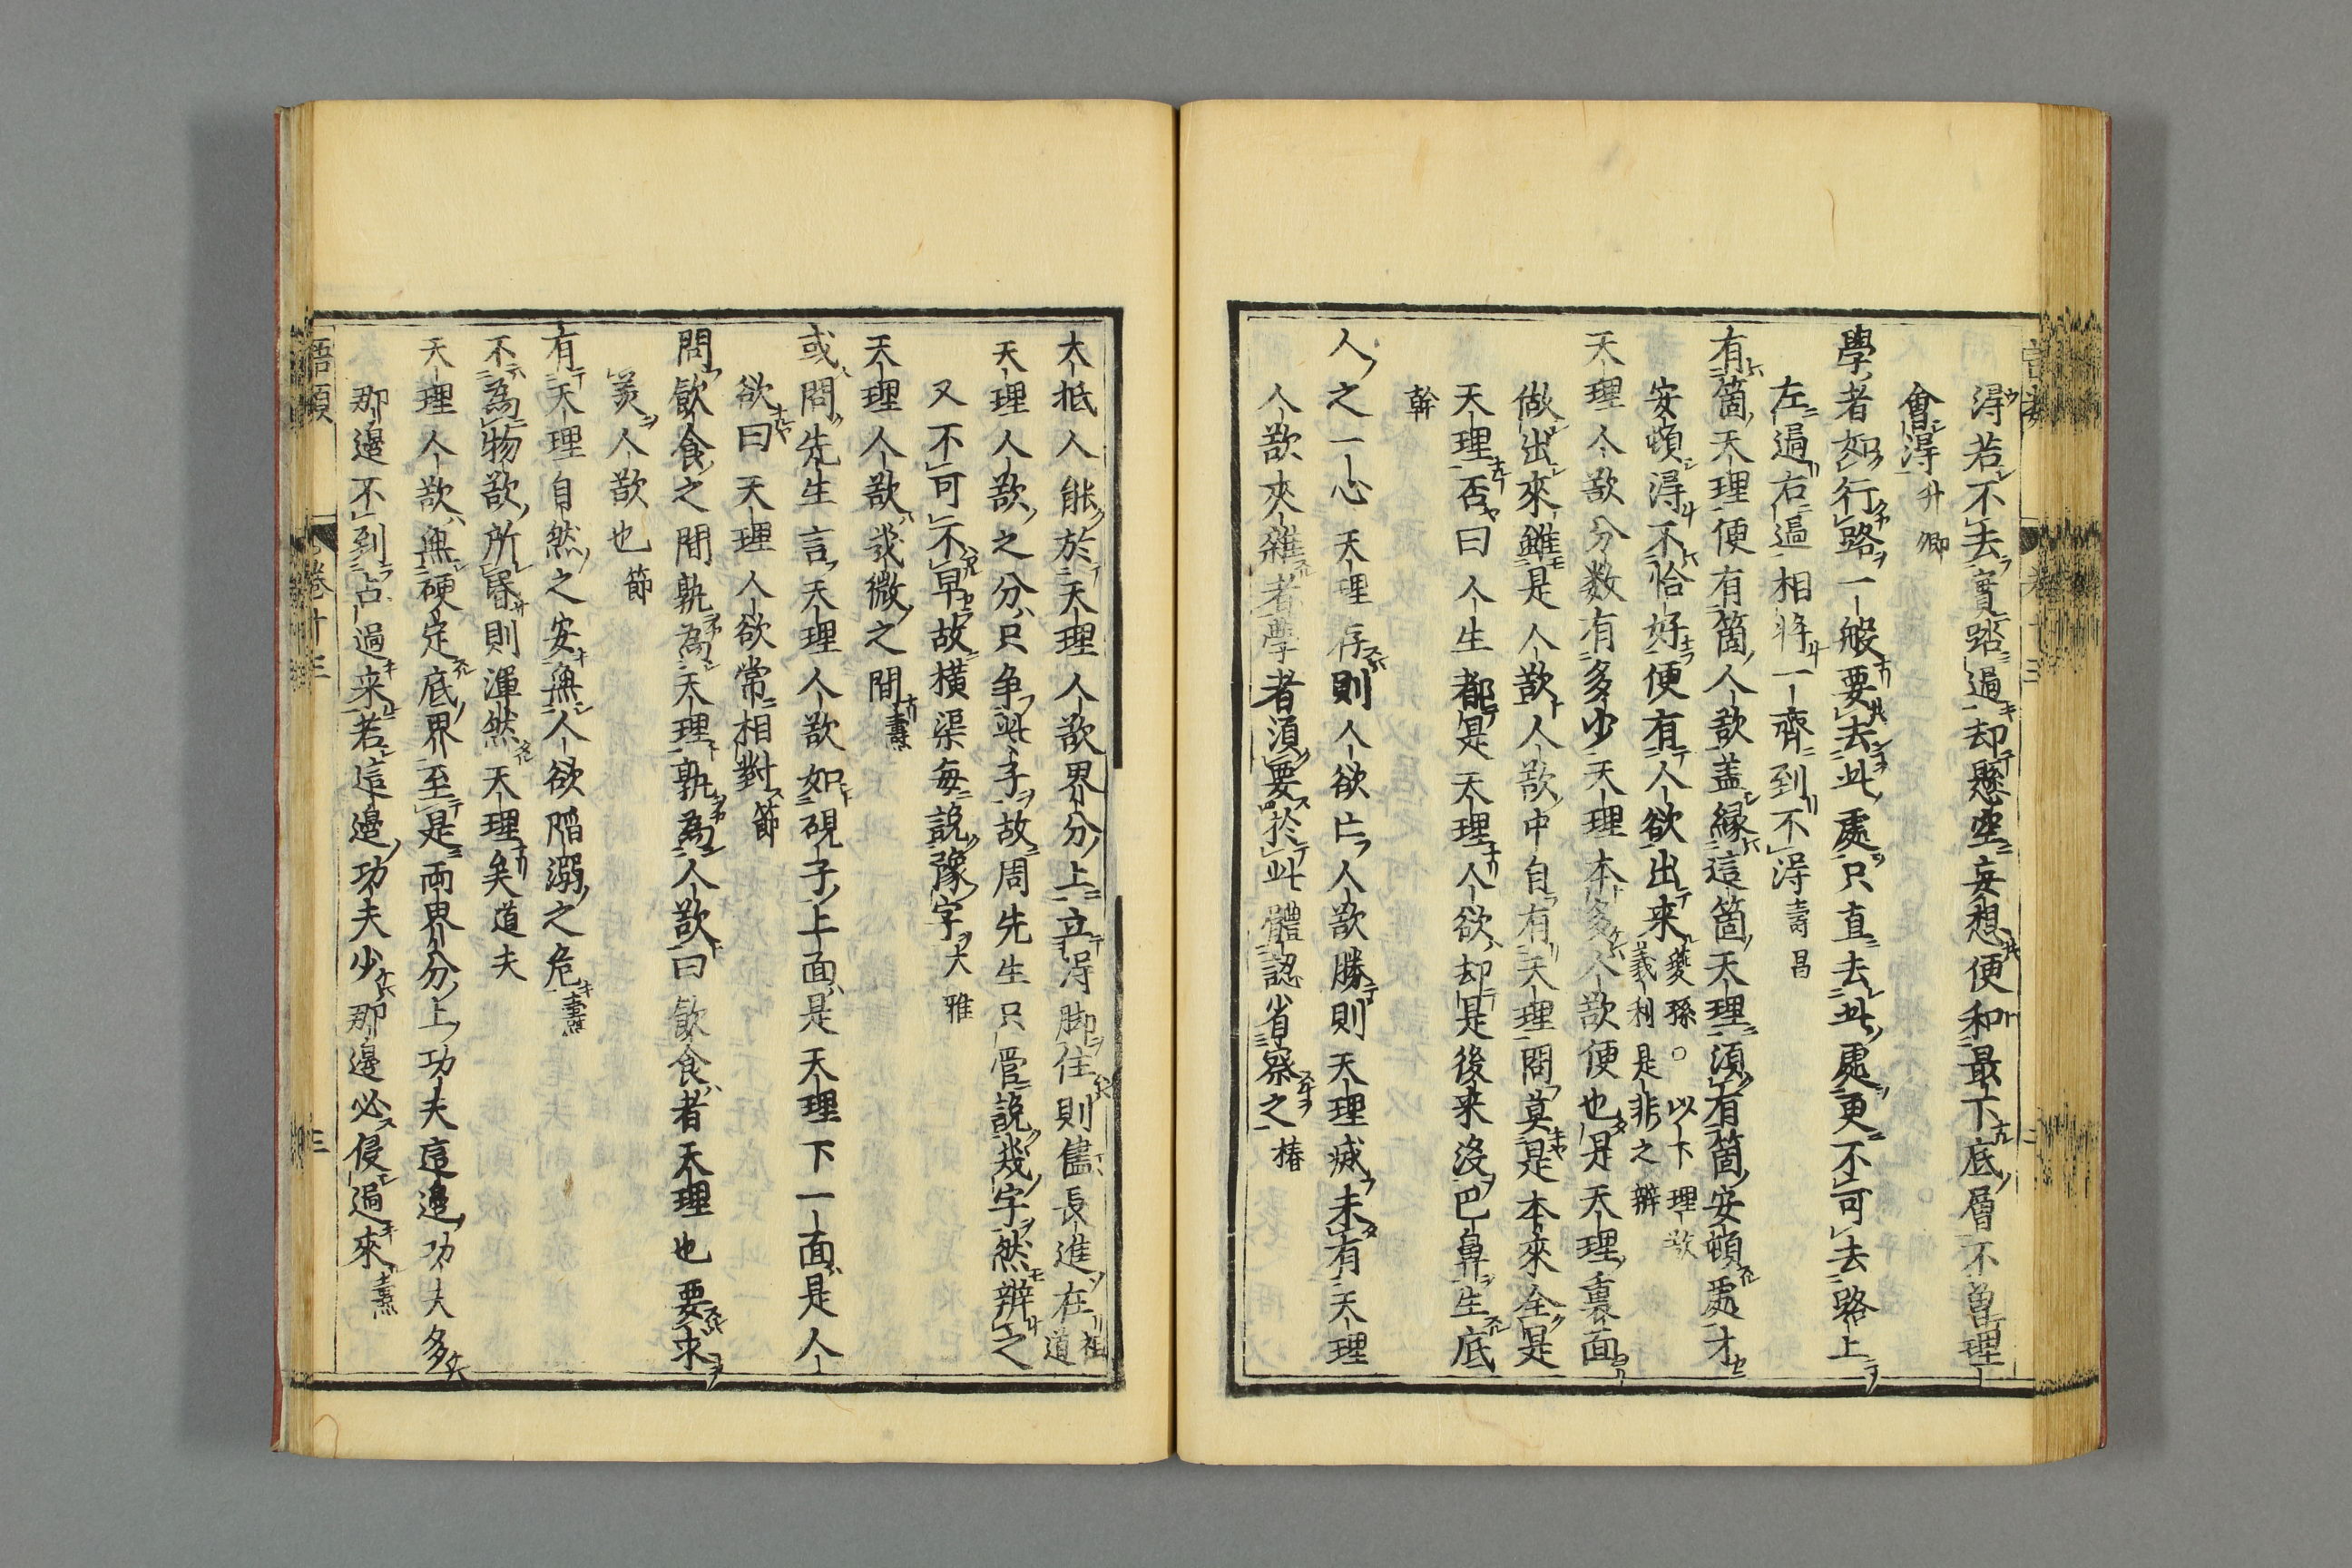 得若不去實踏過却懸空妄想便和最下底層不曾理
會得升卿
學者如行路一般要去此處只直去此處更不可去路上
左過右過相將一齊到不得壽昌
有箇天理便有箇人欲蓋緣這箇天理須有箇安頓處才
安頓得不恰好便有人欲出來夔孫○以下理欲
義利是非之辨
天理人欲分数有多少天理本多人欲便也是天理裏面
做出來雖是人欲人欲中自有天理問莫是本來全是
天理否曰人生都是天理人欲却是後来沒巴鼻生底
幹
人之一心天理存則人欲亡人欲勝則天理滅未有天理
人欲夾雜者學者須要於此體認省察之椿
大抵人能於天理人欲界分上立得脚住則儘長進在祖
道
天理人欲之分只争些子故周先生只管說幾字然辨之
又不可不早故橫渠每說豫字大雅
天理人欲幾微之間燾
或問先生言天理人欲如硯子上面是天理下一面是人
欲曰天理人欲常相對節
問飲食之間孰為天理孰為人欲曰飲食者天理也要求
美人欲也節
有天理自然之安無人欲陷溺之危燾
不為物欲所昬則渾然天理矣道夫
天理人欲無硬定底界至是兩界分上功夫這邉功夫多
那邉不到占過来若這邉功夫少那邉必侵過來燾
語類
卷十三
三